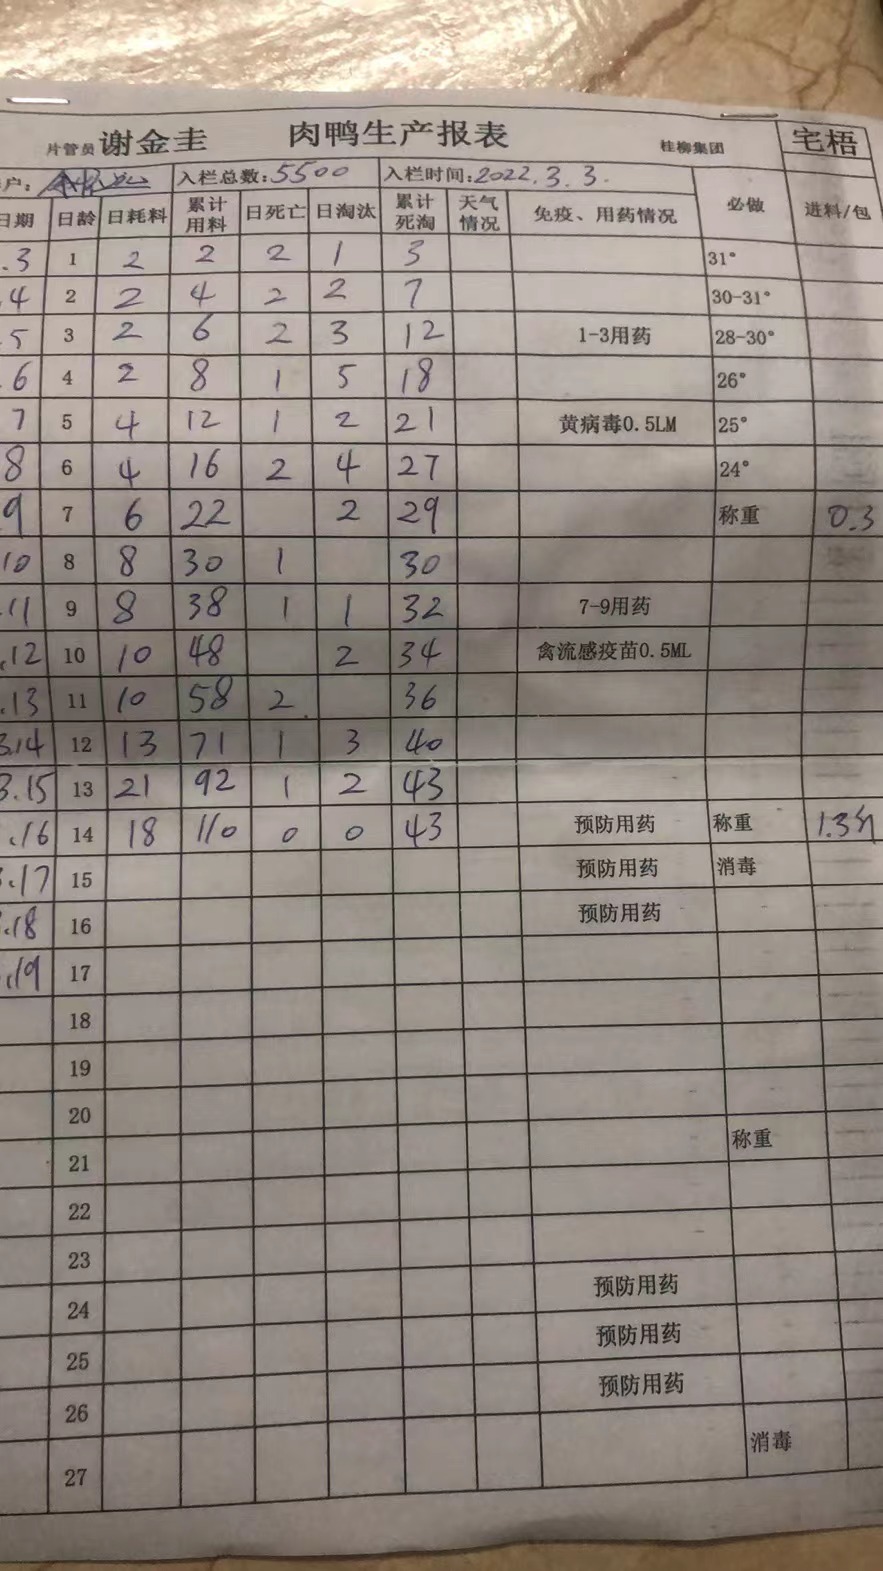 片管员 谢金圭 肉鸭生产报表 桂柳集团 宅梧
户: 入栏总数:5500 入栏时间:2022.3.3.
日期 日龄 日耗料 累计用料 日死亡 日淘汰 累计死淘 天气情况 免疫、用药情况 必做 进料/包
.3 1 2 2 2 1 3 31°
.4 2 2 4 2 2 7 30-31°
.5 3 2 6 2 3 12 1-3用药 28-30°
.6 4 2 8 1 5 18 26°
7 5 4 12 1 2 21 黄病毒0.5LM 25°
8 6 4 16 2 4 27 24°
9 7 6 22 2 29 称重 0.3
10 8 8 30 1 30
.11 9 8 38 1 1 32 7-9用药
.12 10 10 48 2 34 禽流感疫苗0.5ML
.13 11 10 58 2 36
3.14 12 13 71 1 3 40
3.15 13 21 92 1 2 43
.16 14 18 110 0 0 43 预防用药 称重 1.3
3.17 15 预防用药 消毒
.18 16 预防用药
.19 17
18
19
20
21 称重
22
23
24 预防用药
25 预防用药
26 预防用药
27 消毒